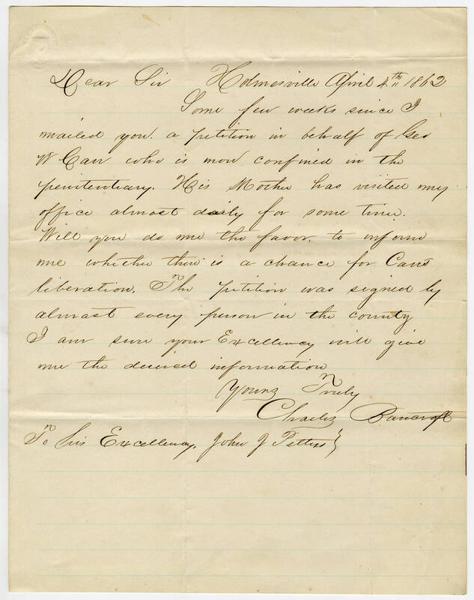 Dear Sir Holmesville April 4th 1862
Some few weeks since I
mailed you a petition in behalf of Geo
W Carr who is now confined in the
penitentiary. His Mother has visited my
office almost daily for some time.
Will you do me the favor to inform
me whether there is a chance for Carrs
liberation. The petition was signed by
almost every person in the county
I am sure your Excellency will give
me the desired information
Yours Truly
Charles Bancroft
To his Excellency, John J Pettus}